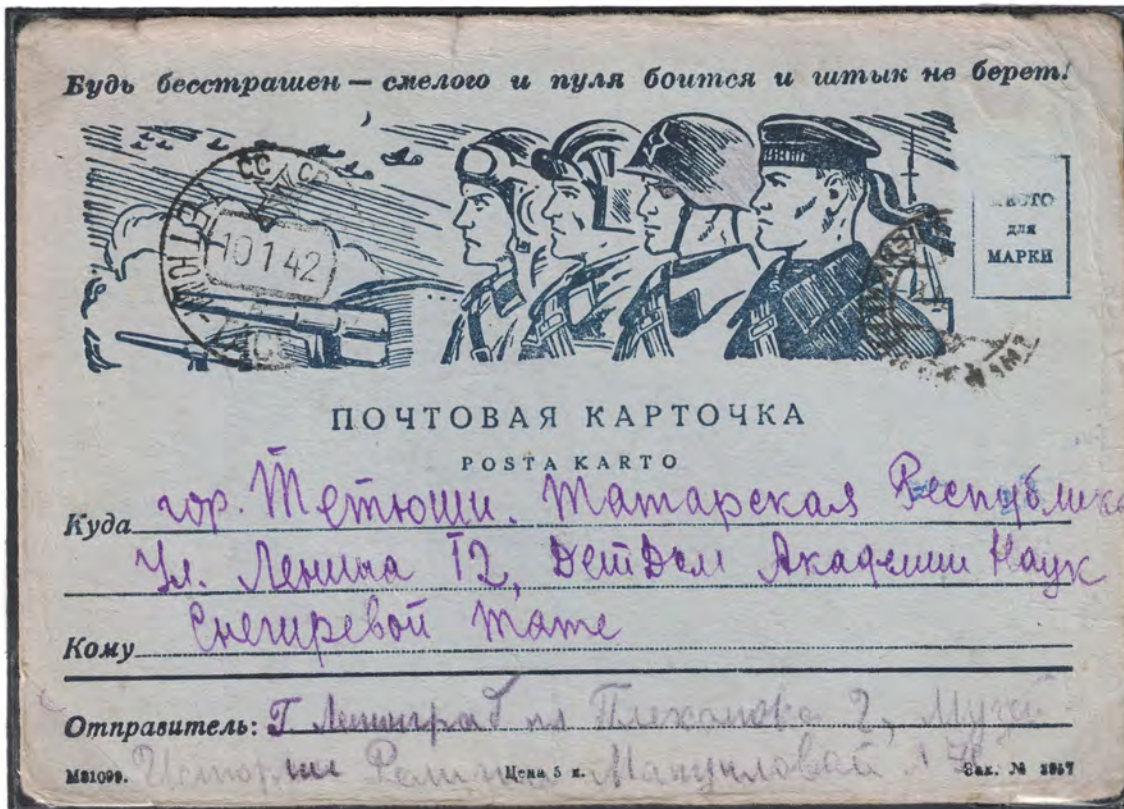 Будь бесстрашен — смелого и пуля боится и штык не берет!
СССР
10 1 42
МЕСТО
для
МАРКИ
ПОЧТОВАЯ КАРТОЧКА
POSTA KARTO
Куда гор. Тетюши. Татарская Республика
Ул. Ленина 12, ДетДом Академии Наук
Кому Снегиревой Тате
Отправитель: Г Ленинград пл Плеханова 2, Музей
Истории Религии Мануиловой
М81099. Цена 5 к. Зак. №